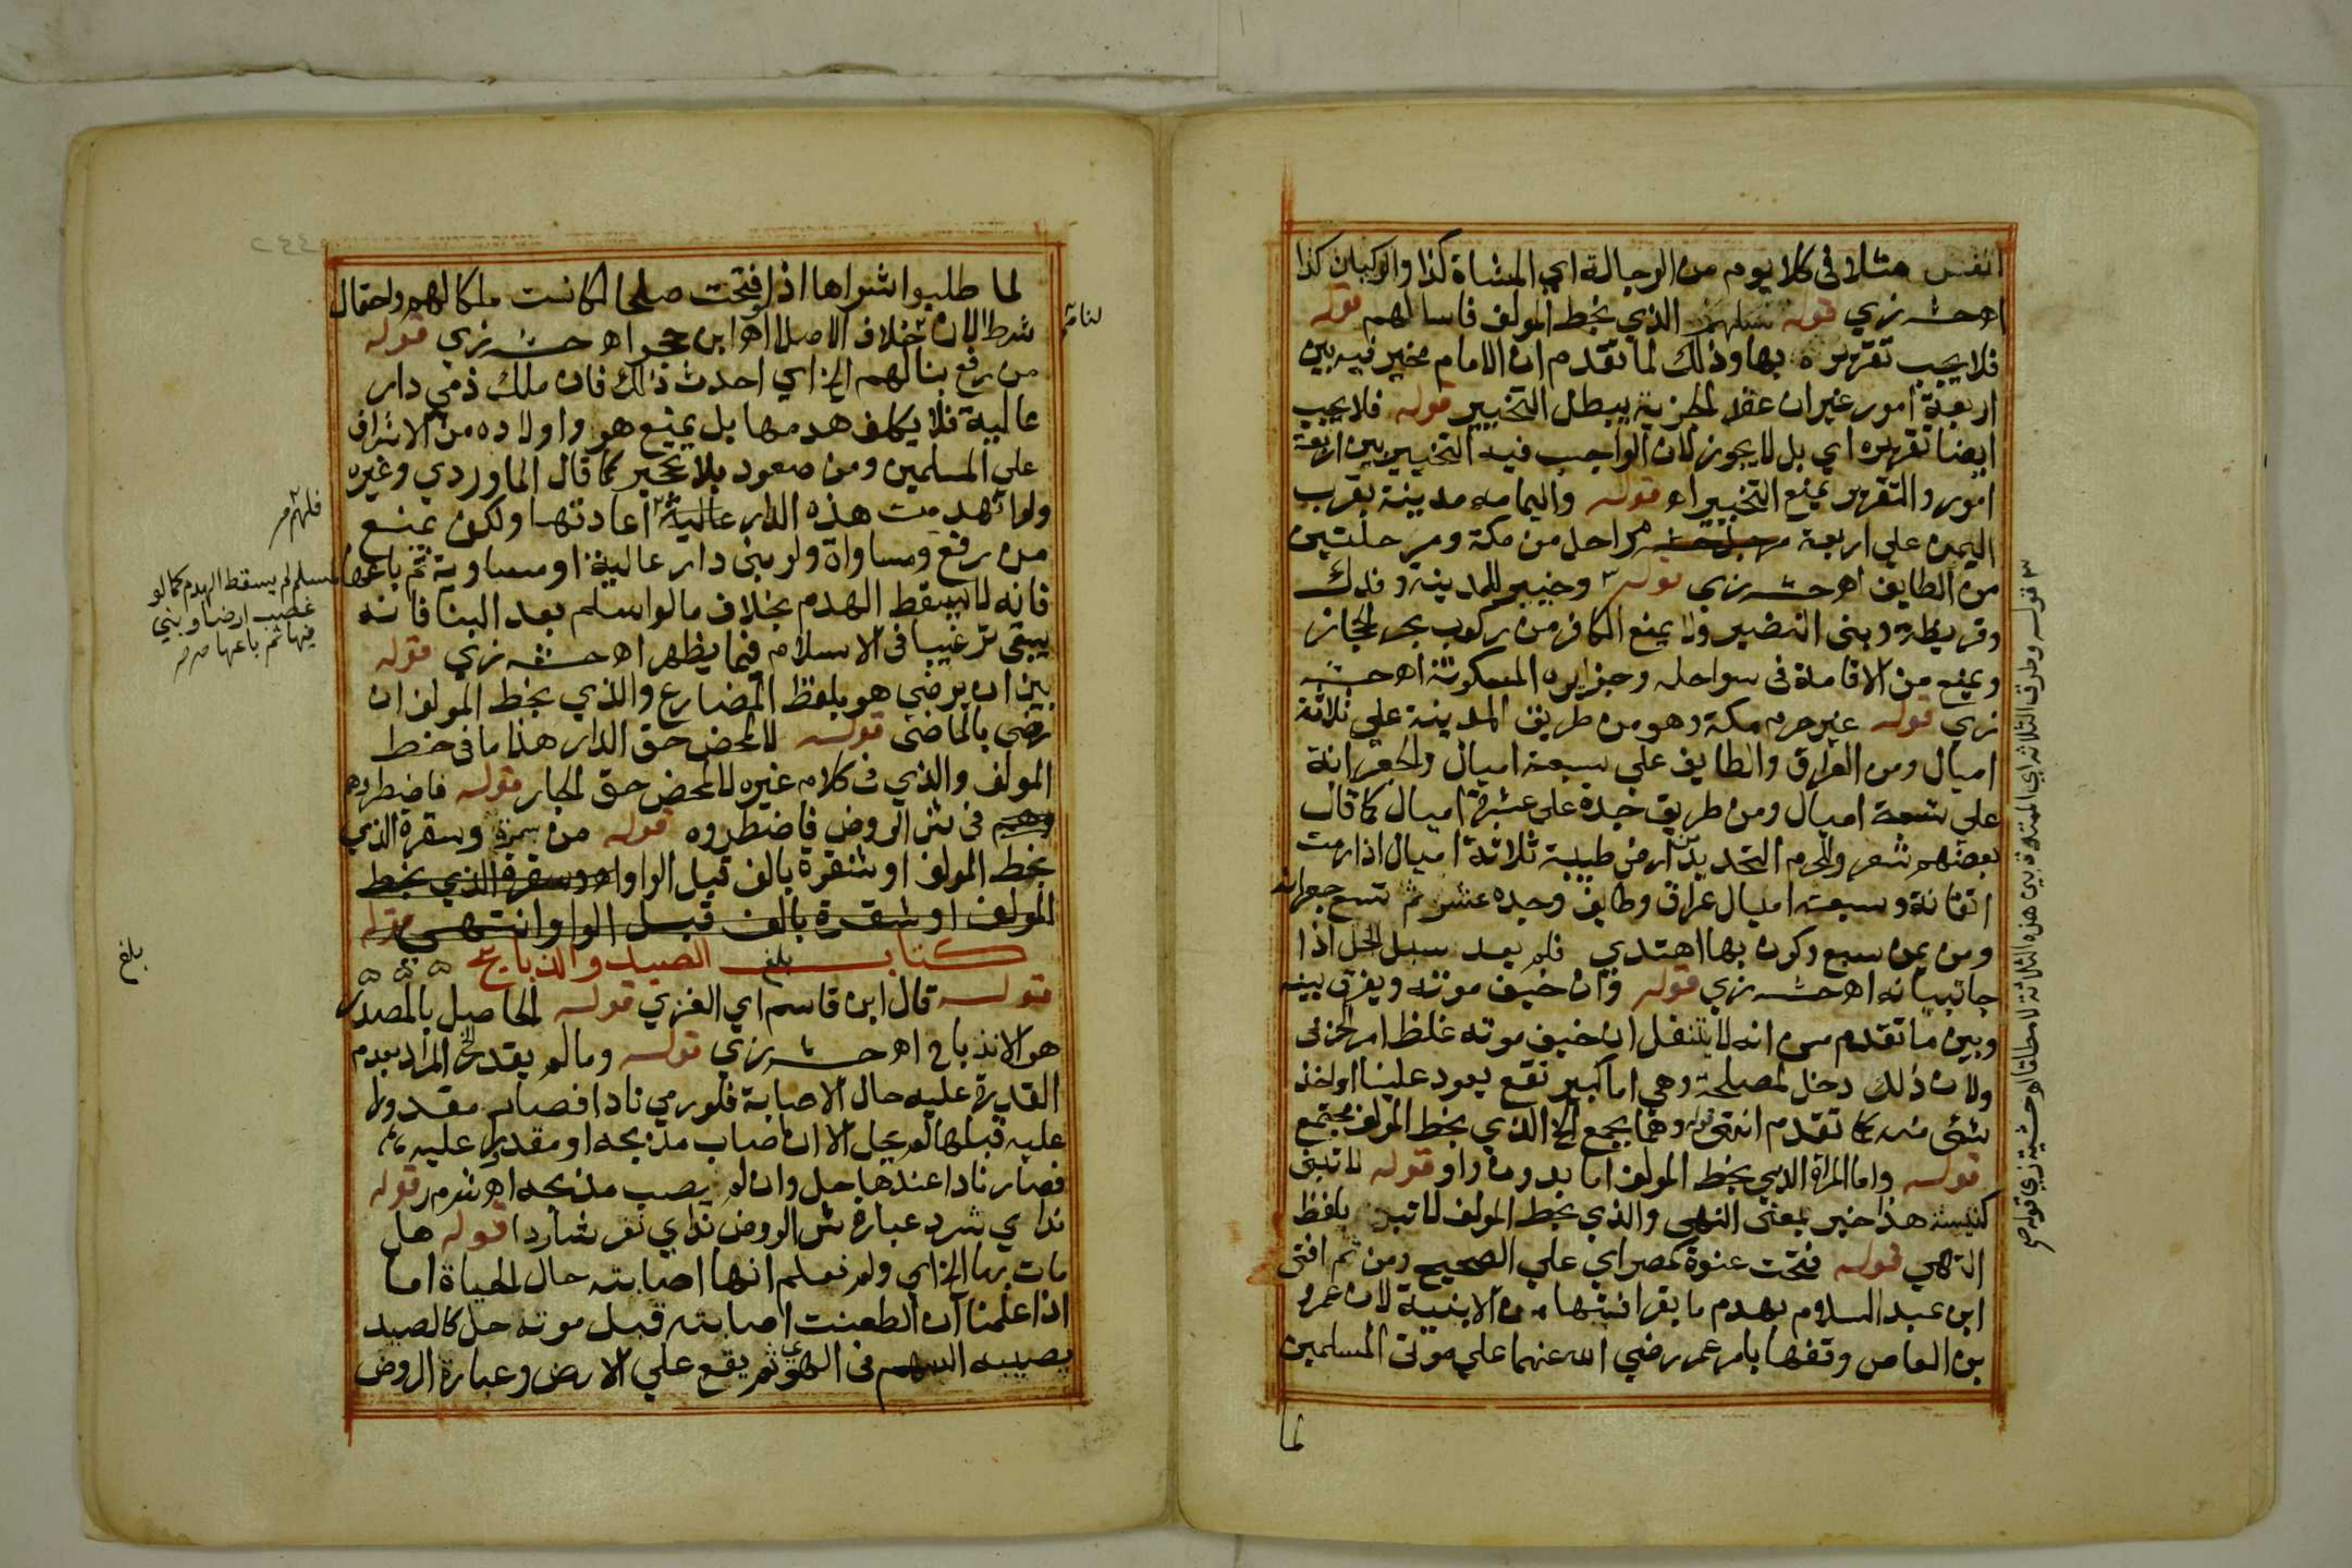 انفس مثلا في كلا يوم من الرجالة اي المشاة كذا والركبان كذا
اهحش زي قوله الذي بخط المولف فاسالهم قوله
فلا يجب تقريره بها وذلك لما تقدم ان الامام مخير فيه بين
اربعة امور غير ان عقد الجزية يبطل التخيير قوله فلا يجب
ايضا تقريره اي بل لا يجوز لان الواجب فيه التخيير بين اربعة
امور والتقرير يمنع التخيير اه قوله واليمامه مدينة بقرب
اليمن علي اربعة مراحل من مكة ومرحلتين
من الطايف اهحش زي قوله ٣ وخيبر للمدينة وفدك
وقريظة وبني النضير ولا يمنع الكافر من ركوب بحر الحجاز
ويمنع من الاقامة في سواحله وجزايره المسكونة اهحش
زي قوله غير حرم مكة وهو من طريق المدينة علي ثلاثة
اميال ومن العراق والطايف علي سبعة اميال والجعرانة
علي تسعة اميال ومن طريق جدة علي عشرة اميال كما قال
بعضهم شعر وللحرم التحديد من ارض طيبة ثلاثة اميال اذا رمت
اتقانة وسبعة اميال عراق وطايف وجده عشر ثم تسع جعرانه
ومن يمن سبع وكرن بها اهتدي فلم يعد سبل الحل اذا
جا تبيانه اهحش زي قوله وان خيف موته ويفرق بينه
وبين ما تقدم من انه لا ينقل ان خيف موته غلظ امر الحربي
ولان ذلك دخل لمصلحة وهي اما كبير نفع يعود علينا او اخذ
شئ منه كما تقدم انتهى قوله وهما يجمع الخ الذي بخط المولف مجتمع
قوله واما المراة الذي بخط المولف اما بدون واو قوله لا تبنى
كنيسة هذا خبر بمعنى النهي والذي بخط المولف لا تبن بلفظ
النهي قوله فتحت عنوة كمصر اي علي الصحيح ومن ثم افتى
ابن عبد السلام بهدم ما بقرافتها من الابنية لان عمرو
بن العاص وقفها بامر عمر رضي الله عنهما علي موتى المسلمين
لما
٣ قوله وطرق الثلاثه اي الممتدة بين هذه الثلاثة لا مطلقا اه حش زي قوله صح
لما طلبوا شراها اذ لو فتحت صلحا لكانت ملكا لهم واحتمال
شرط الان خلاف الاصل اه ابن حجر اه حش زي قوله
لنا
من رفع بنا لهم الخ اي احدث ذلك فان ملك ذمي دار
عالية فلا يكلف هدمها بل يمنع هو واولاده من الاشراف
علي المسلمين ومن صعود بلا تحجير كما قال الماوردي وغيره
ولو انهدمت هذه الدار عالية اعادتها ولكن يمنع
فلهم مر
من رفع ومساواة ولو بنى دار عالية او مساوية ثم باعها
لمسلم لم يسقط الهدم كما لو
غصب ارضا وبني
فيها ثم باعها
فانه لا يسقط الهدم بخلاف ما لو اسلم بعد البنا فانه
يبقى ترغيبا في الاسلام فيما يظهر اهحش زي قوله
بين ان يرضي هو بلفظ المضارع والذي بخط المولف ان
رضي بالماضي قوله لا لمحض حق الدار هذا ما في خط
المولف والذي في كلام غيره لا لمحض حق الجار قوله فاضطروهم
في شرح الروض فاضطروه قوله من سمرة وسقرة الذي
بخط المولف او شقرة بالف قبل الواو اه وسقرة الذي بخط
المولف او شقرة بالف قبل الواو انتهى قوله
كتاب الصيد والذبايح
بلغ
بلغ
قوله قال ابن قاسم اي الغزي قوله الحاصل بالمصدر
هو الانذباح اهحش زي قوله وما لم يقدر الخ المراد بعدم
القدرة عليه حال الاصابة فلو رمي نادا فصار مقدورا
عليه قبلها لم يحل الا ان اصاب مذبحه او مقدورا عليه
فصار نادا عندها حل وان لم يصب مذبحه اه شرم ر قوله
ند اي شرد عبارة ش الروض ند اي نفر شاردا قوله هل
مات بها الخ اي ولم نعلم انها اصابته حال الحياة اما
اذا علمنا ان الطعنت اصابته قبل موته حل كالصيد
يصيبه السهم في الهوي ثم يقع علي الارض وعبارة الروض